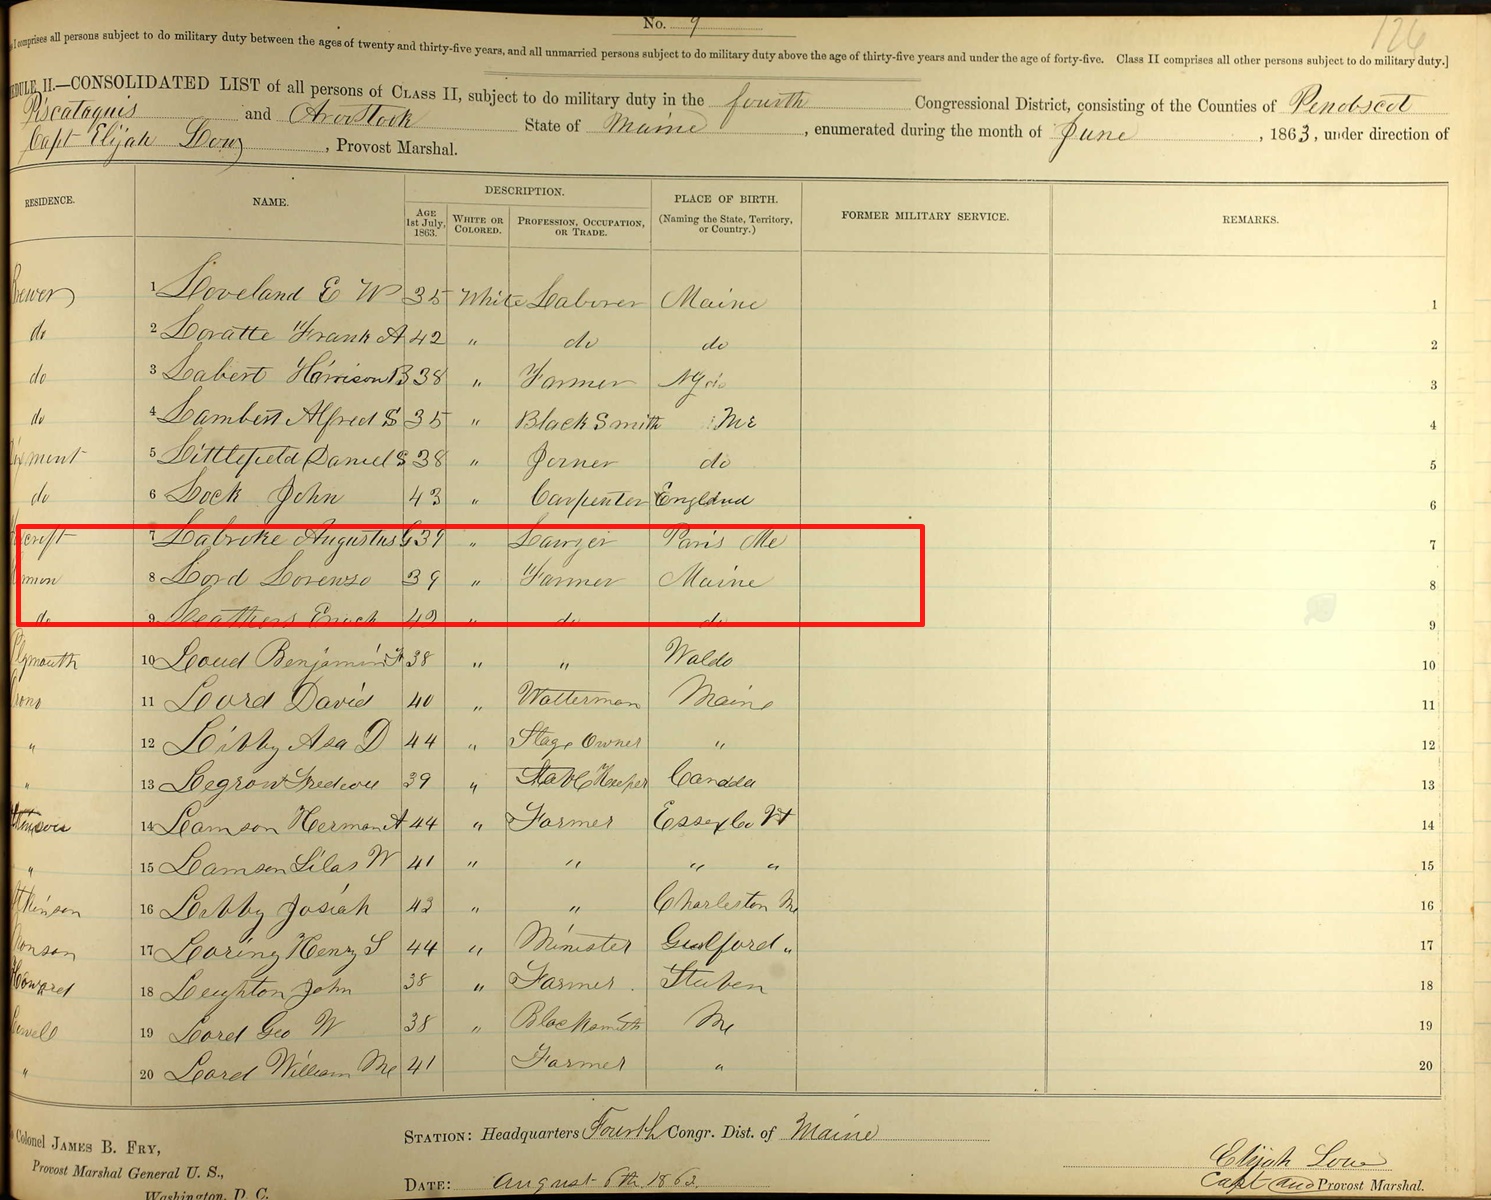 No. 9
126
comprises all persons subject to do military duty between the ages of twenty and thirty-five years, and all unmarried persons subject to do military duty above the age of thirty-five years and under the age of forty-five. Class II comprises all other persons subject to do military duty.]
II.—CONSOLIDATED LIST of all persons of CLASS II, subject to do military duty in the fourth Congressional District, consisting of the Counties of Penobscot
Piscataquis and Aroostook State of Maine, enumerated during the month of June, 1863, under direction of
Capt Elijah Low, Provost Marshal.
RESIDENCE. NAME. DESCRIPTION. PLACE OF BIRTH. FORMER MILITARY SERVICE. REMARKS.
AGE 1st July, 1863. WHITE OR COLORED. PROFESSION, OCCUPATION, OR TRADE. (Naming the State, Territory, or Country.)
Brewer 1 Loveland E W 35 White Laborer Maine 1
do 2 Loratte Frank A 42 " do do 2
do 3 Labert Harrison B 38 " Farmer 3
do 4 Lambert Alfred S 35 " Black Smith Me 4
5 Littlefield Daniel S 38 " Joiner do 5
do 6 Lock John 43 " Carpenter England 6
7 Labroke Augustus G 39 " Lawyer Paris Me 7
8 Lord Lorenzo 39 " Farmer Maine 8
do 9 Leathers Enoch 42 " do do 9
Plymouth 10 Loud Benjamin F 38 " " Waldo 10
Orono 11 Lord David 40 " Watterman Maine 11
" 12 Libby Asa D 44 " Stage Owner " 12
" 13 Legrow 39 " Stable Keeper Canada 13
14 Lamson Herman A 44 " Farmer Essex Co Vt 14
" 15 Lamson Silas W 41 " " " " 15
Atkinson 16 Libby Josiah 43 " " Charleston Me 16
Monson 17 Loring Henry S 44 " Minister Guilford " 17
Howard 18 Leighton John 38 " Farmer Stuben 18
Lowell 19 Lord Geo W 38 " Blacksmith Me 19
" 20 Lord William Mc 41 Farmer " 20
Colonel JAMES B. FRY,
Provost Marshal General U. S.,
Washington, D. C.
STATION: Headquarters Fourth Congr. Dist. of Maine
DATE: August 6th 1863.
Elijah Low
Capt and Provost Marshal.